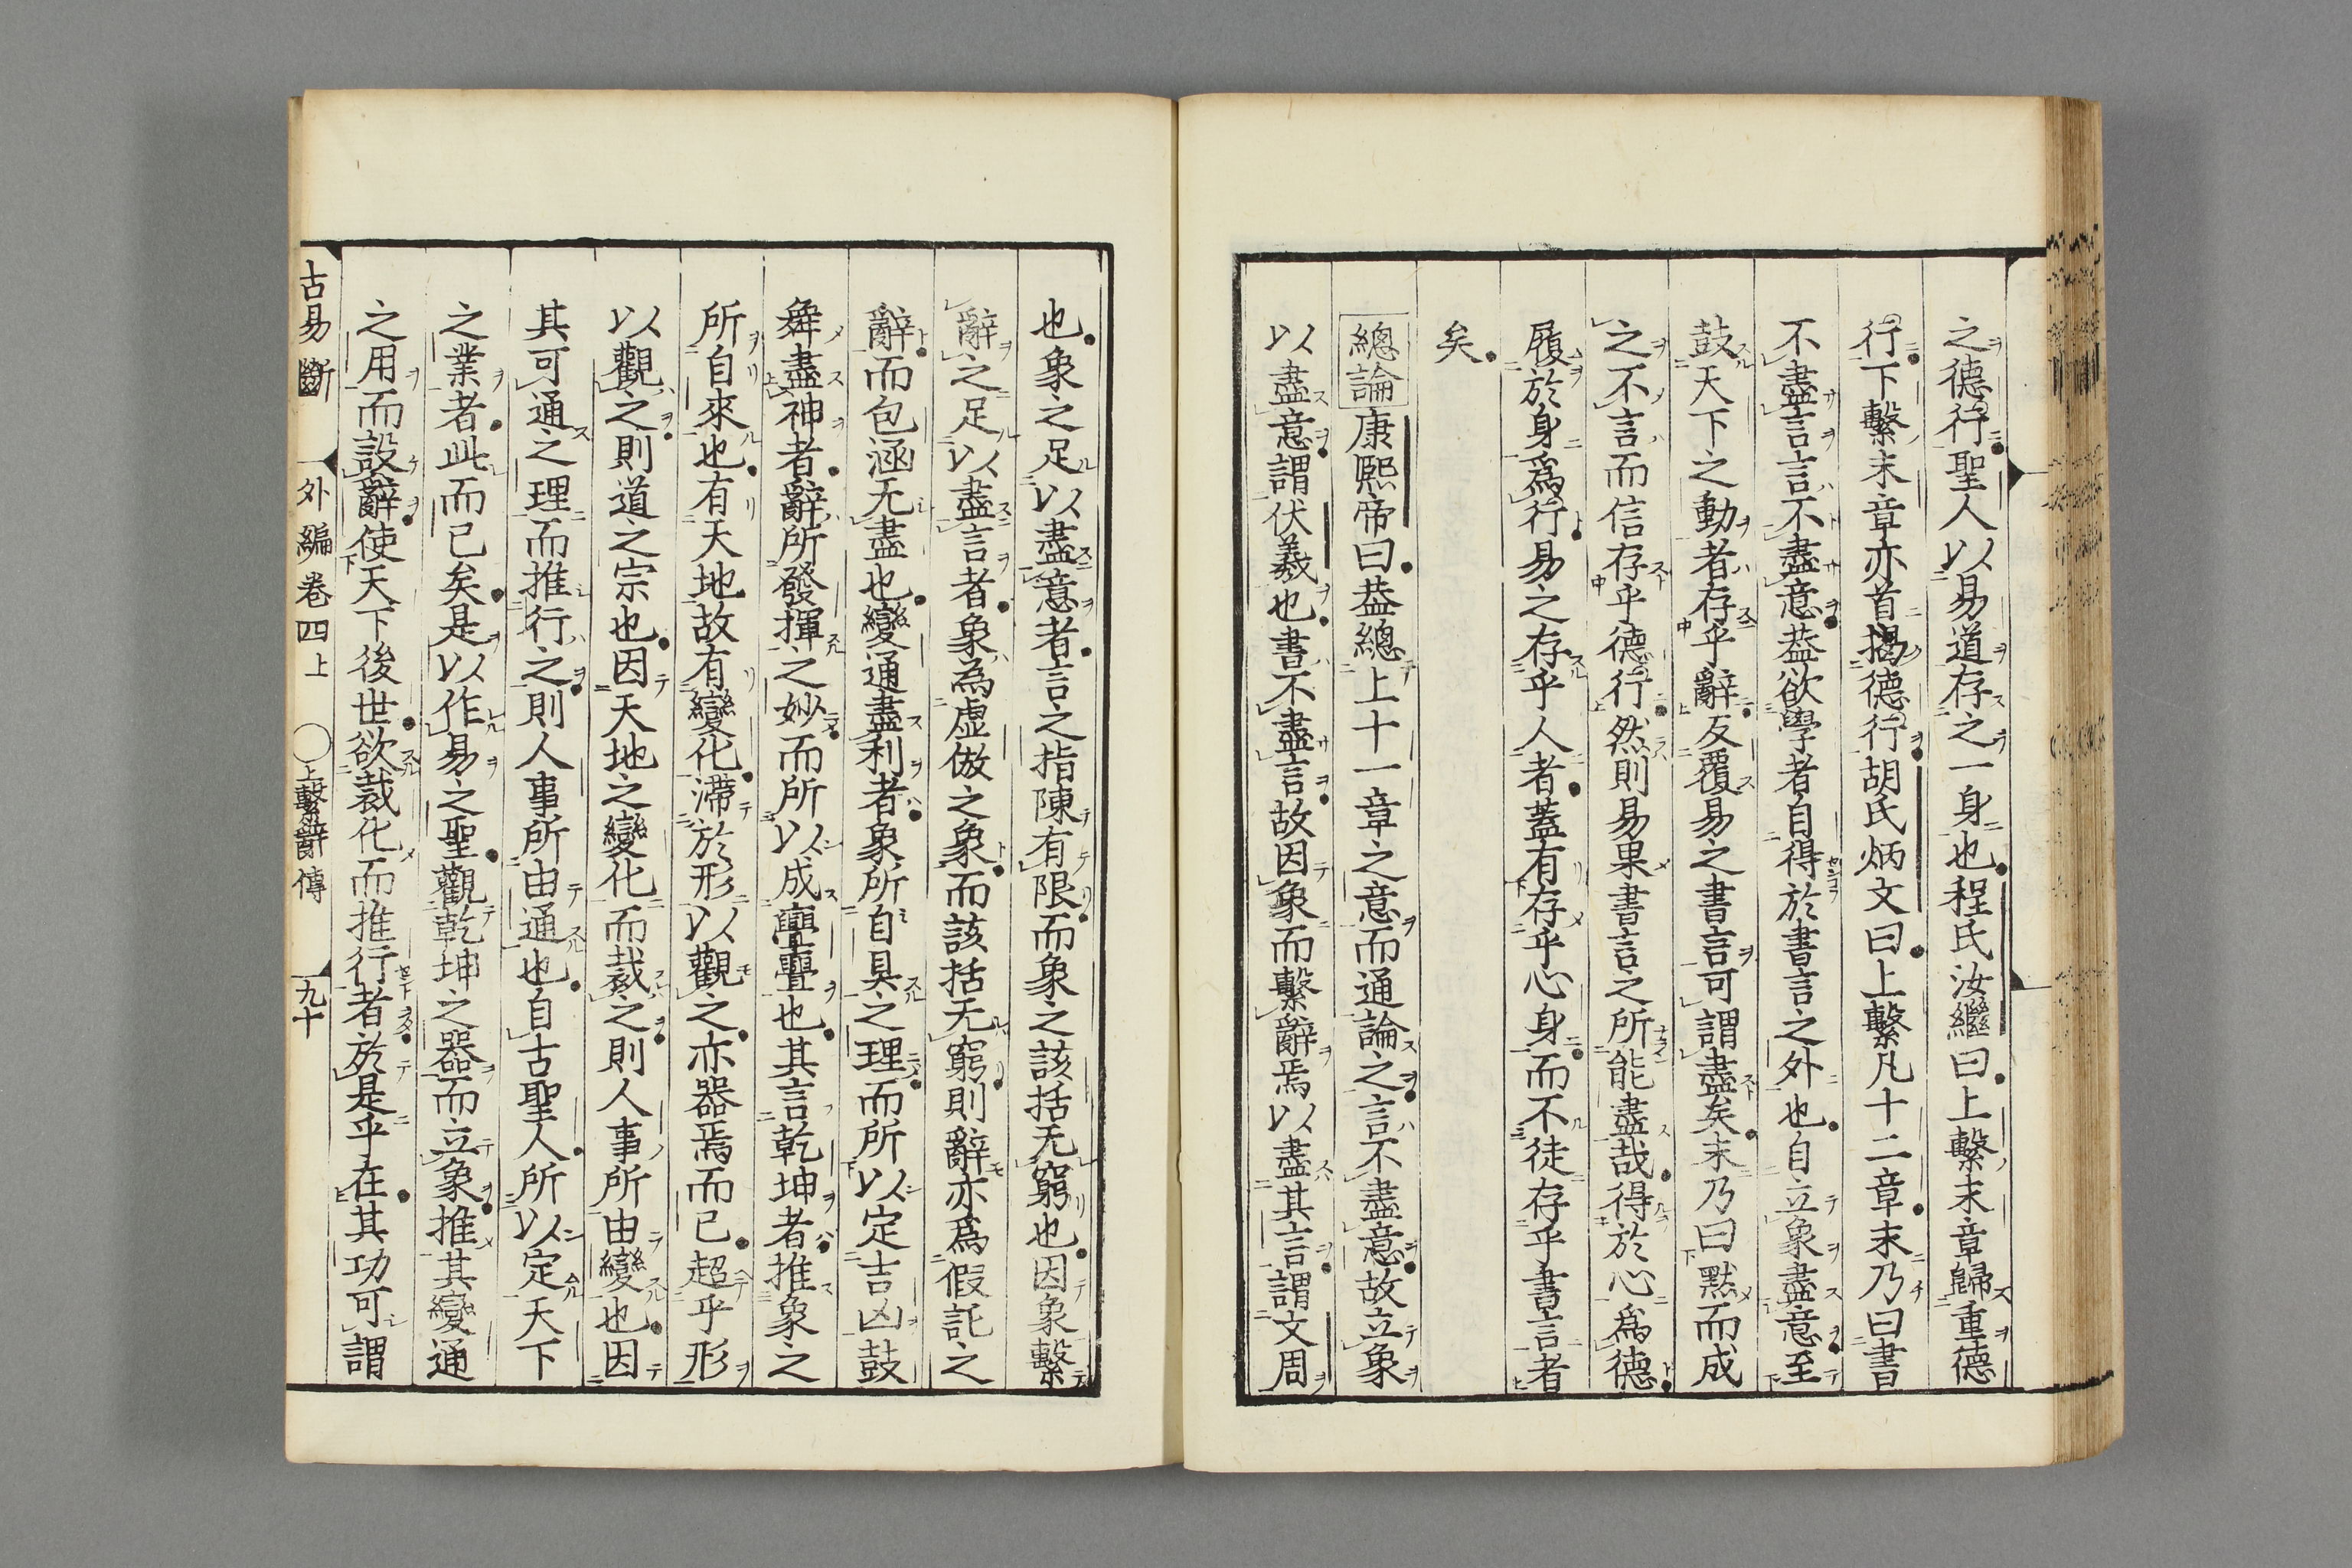 之德行聖人以易道存之一身也程氏汝繼曰上繫末章歸重德
行下繫末章亦首揭德行胡氏炳文曰上繫凡十二章末乃曰書
不盡言言不盡意葢欲學者自得於書言之外也自立象盡意至
鼓天下之動者存乎辭反覆易之書言可謂盡矣末乃曰默而成
之不言而信存乎德行然則易果書言之所能盡哉得於心爲德
履於身爲行易之存乎人者蓋有存乎心身而不徒存乎書言者
矣
總論康熙帝曰葢總上十一章之意而通論之言不盡意故立象
以盡意謂伏羲也書不盡言故因象而繫辭焉以盡其言謂文周
也象之足以盡意者言之指陳有限而象之該括无窮也因象繫
辭之足以盡言者象為虛倣之象而該括无窮則辭亦爲假託之
辭而包涵无盡也變通盡利者象所自具之理而所以定吉凶鼓
舞盡神者辭所發揮之妙而所以成亹亹也其言乾坤者推象之
所自來也有天地故有變化滯於形以觀之亦器焉而已超乎形
以觀之則道之宗也因天地之變化而裁之則人事所由變也因
其可通之理而推行之則人事所由通也自古聖人所以定天下
之業者此而已矣是以作易之聖觀乾坤之器而立象推其變通
之用而設辭使天下後世欲裁化而推行者於是乎在其功可謂
古易斷　外編卷四上　○上繫辭傳　九十